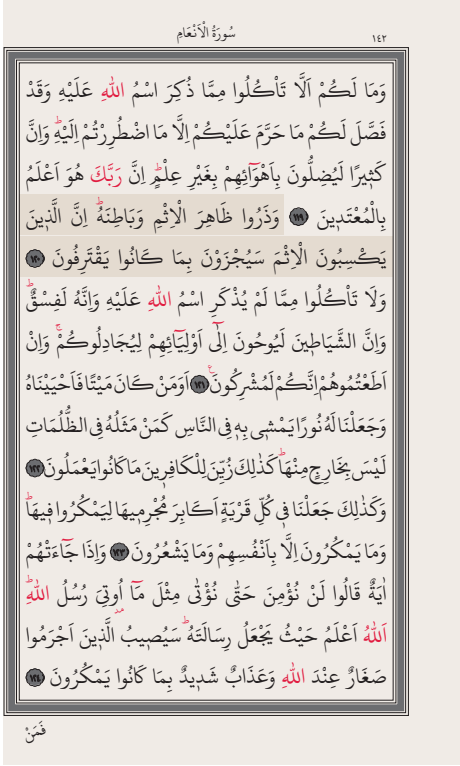 سُورَةُ الْاَنْعَامِ
١٤٢
وَمَا لَكُمْ اَلَّا تَأْكُلُوا مِمَّا ذُكِرَ اسْمُ اللّٰهِ عَلَيْهِ وَقَدْ
فَصَّلَ لَكُمْ مَا حَرَّمَ عَلَيْكُمْ اِلَّا مَا اضْطُرِرْتُمْ اِلَيْهِۜ وَاِنَّ
كَث۪يرًا لَيُضِلُّونَ بِاَهْوَٓائِهِمْ بِغَيْرِ عِلْمٍۜ اِنَّ رَبَّكَ هُوَ اَعْلَمُ
بِالْمُعْتَد۪ينَ ١١٩ وَذَرُوا ظَاهِرَ الْاِثْمِ وَبَاطِنَهُۜ اِنَّ الَّذ۪ينَ
يَكْسِبُونَ الْاِثْمَ سَيُجْزَوْنَ بِمَا كَانُوا يَقْتَرِفُونَ ١٢٠
وَلَا تَأْكُلُوا مِمَّا لَمْ يُذْكَرِ اسْمُ اللّٰهِ عَلَيْهِ وَاِنَّهُ لَفِسْقٌۜ
وَاِنَّ الشَّيَاط۪ينَ لَيُوحُونَ اِلٰٓى اَوْلِيَٓائِهِمْ لِيُجَادِلُوكُمْۚ وَاِنْ
اَطَعْتُمُوهُمْ اِنَّكُمْ لَمُشْرِكُونَ۟ ١٢١ اَوَمَنْ كَانَ مَيْتًا فَاَحْيَيْنَاهُ
وَجَعَلْنَا لَهُ نُورًا يَمْش۪ي بِه۪ فِي النَّاسِ كَمَنْ مَثَلُهُ فِي الظُّلُمَاتِ
لَيْسَ بِخَارِجٍ مِنْهَاۜ كَذٰلِكَ زُيِّنَ لِلْكَافِر۪ينَ مَا كَانُوا يَعْمَلُونَ ١٢٢
وَكَذٰلِكَ جَعَلْنَا ف۪ي كُلِّ قَرْيَةٍ اَكَابِرَ مُجْرِم۪يهَا لِيَمْكُرُوا ف۪يهَاۜ
وَمَا يَمْكُرُونَ اِلَّا بِاَنْفُسِهِمْ وَمَا يَشْعُرُونَ ١٢٣ وَاِذَا جَٓاءَتْهُمْ
اٰيَةٌ قَالُوا لَنْ نُؤْمِنَ حَتّٰى نُؤْتٰى مِثْلَ مَٓا اُو۫تِيَ رُسُلُ اللّٰهِۜ
اَللّٰهُ اَعْلَمُ حَيْثُ يَجْعَلُ رِسَالَتَهُۜ سَيُص۪يبُ الَّذ۪ينَ اَجْرَمُوا
صَغَارٌ عِنْدَ اللّٰهِ وَعَذَابٌ شَد۪يدٌ بِمَا كَانُوا يَمْكُرُونَ ١٢٤
فَمَنْ